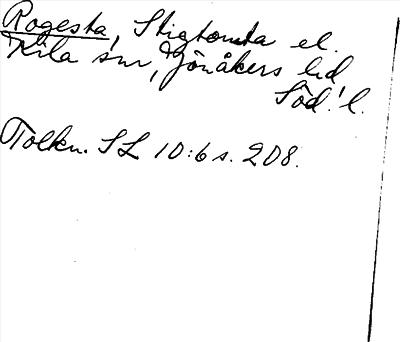 Rogesta, Stigtomta el.
Kila snr, Jönåkers hd
Söd. l.
Tolkn. SL 10:6 s. 208.